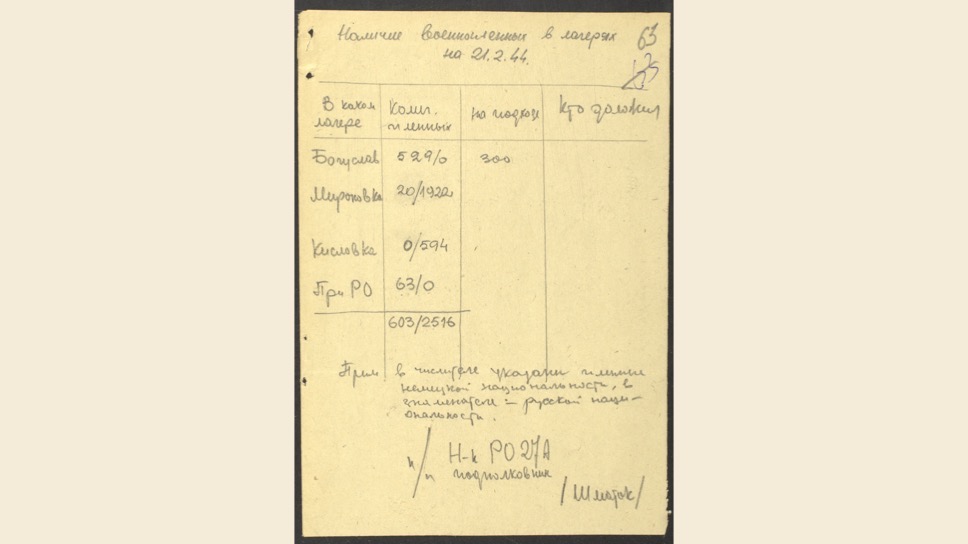 Наличие военнопленных в лагерях 63
на 21.2.44.
В каком лагере Колич. пленных на подходе Кто доложил
Богуслав 529/0 300
Мироновка 20/1922
Кисловка 0/594
При РО 63/0
603/2516
Прим в числителе указаны пленные
немецкой национальности, в
знаменателе – русской наци-
ональности.
п/п Н-к РО 27А
подполковник
/Шматок/